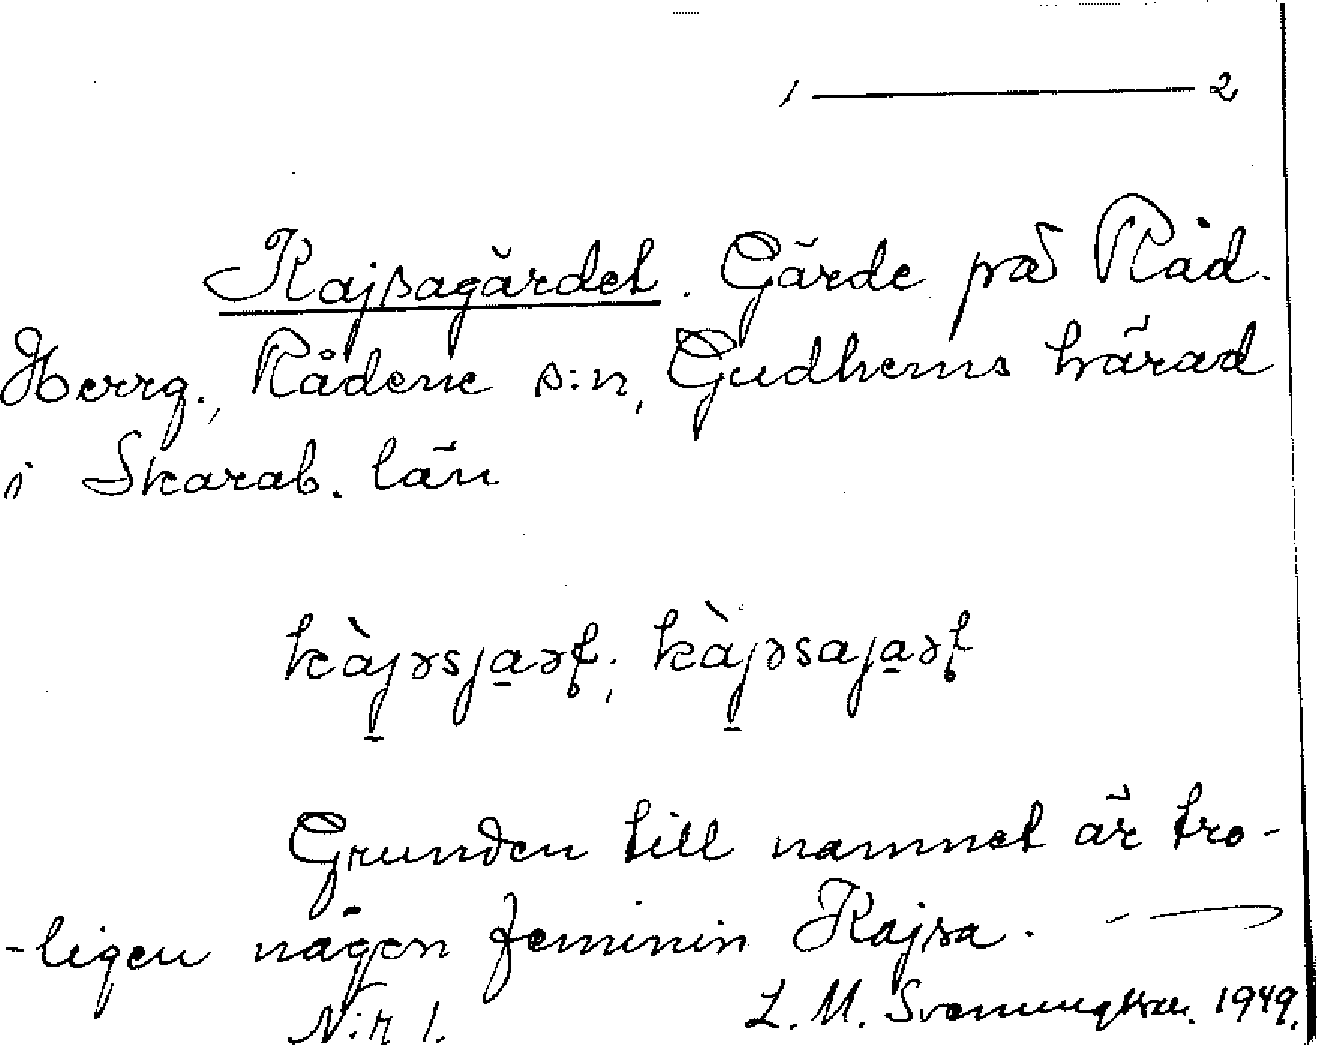 1 ———— 2
Kajsagärdet. Gärde på Råd.
Herrg., Rådene s:n, Gudhems härad
i Skarab. län
kàjəsja̱əɾ; kàjəsaja̱əɾ
Grunden till namnet är tro-
-ligen någon feminin Kajsa. —
N:r 1. L. M. Svenungsson. 1949.